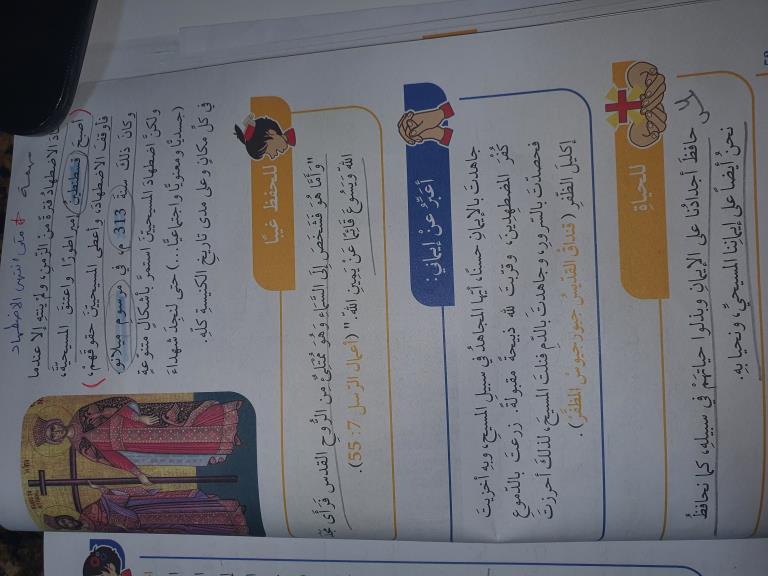 متى انتهى الاضطهاد
الاضطهادُ فترةً من الزّمنِ، ولم ينتهِ إلا عندما
أصبحَ قسطنطين إمبراطورًا واعتنقَ المسيحيّةَ،
فأوقفَ الاضطهادَ، وأعطى المسيحيّينَ حقوقَهم،
وكانَ ذلكَ سنةَ 313 م، في مرسومِ ميلانو
ولكنّ اضطهادَ المسيحيّينَ استمرَّ بأشكالٍ متنوّعةٍ
(جسديًّا ومعنويًّا واجتماعيًّا...) حتى لنجدَ شهداءَ
في كلِّ مكانٍ وعلى مدى تاريخِ الكنيسةِ كلِّهِ.
للحفظِ غيبًا
"وأمّا هو فشخصَ إلى السّماءِ وهو مُمتلئٌ من الرّوحِ القدسِ فرأى
اللهِ ويسوعَ قائمًا عن يمينِ اللهِ." (أعمال الرّسل 7: 55).
أعبّرُ عنْ إيماني:
جاهدتَ بالإيمانِ حسنًا، أيّها المجاهدُ في سبيلِ المسيحِ، وبهِ أخزيتَ
كُفرَ المضطهدينَ، وقرّبتَ للهِ ذبيحةً مقبولةً. زرعتَ بالدّموعِ
فحصدتَ بالسّرورِ، وجاهدتَ بالدّمِ فنلتَ المسيحَ، لذلكَ أحرزتَ
إكليلَ الظّفرِ ( قنداقُ القدّيسِ جيورجيوسَ المظفّرِ).
للحياةِ
حافظَ أجدادُنا على الإيمانِ وبذلوا حياتَهم في سبيلِهِ، كما نحافظُ
نحنُ أيضًا على إيمانِنا المسيحيّ، ونحيا بهِ.